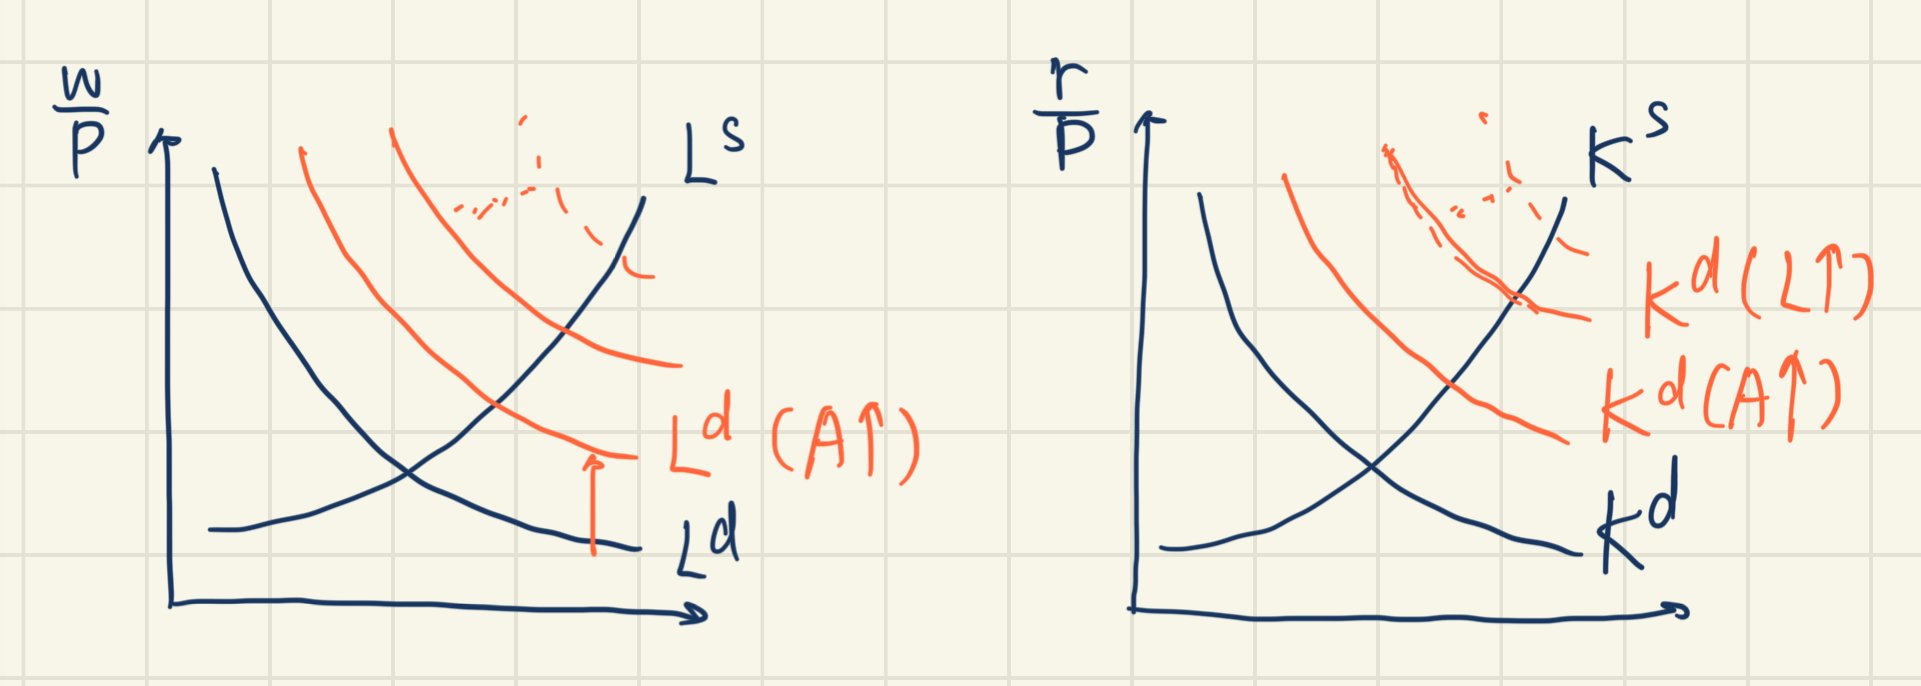 w/P
L^s
L^d (A↑)
L^d
r/P
K^s
K^d (L↑)
K^d (A↑)
K^d